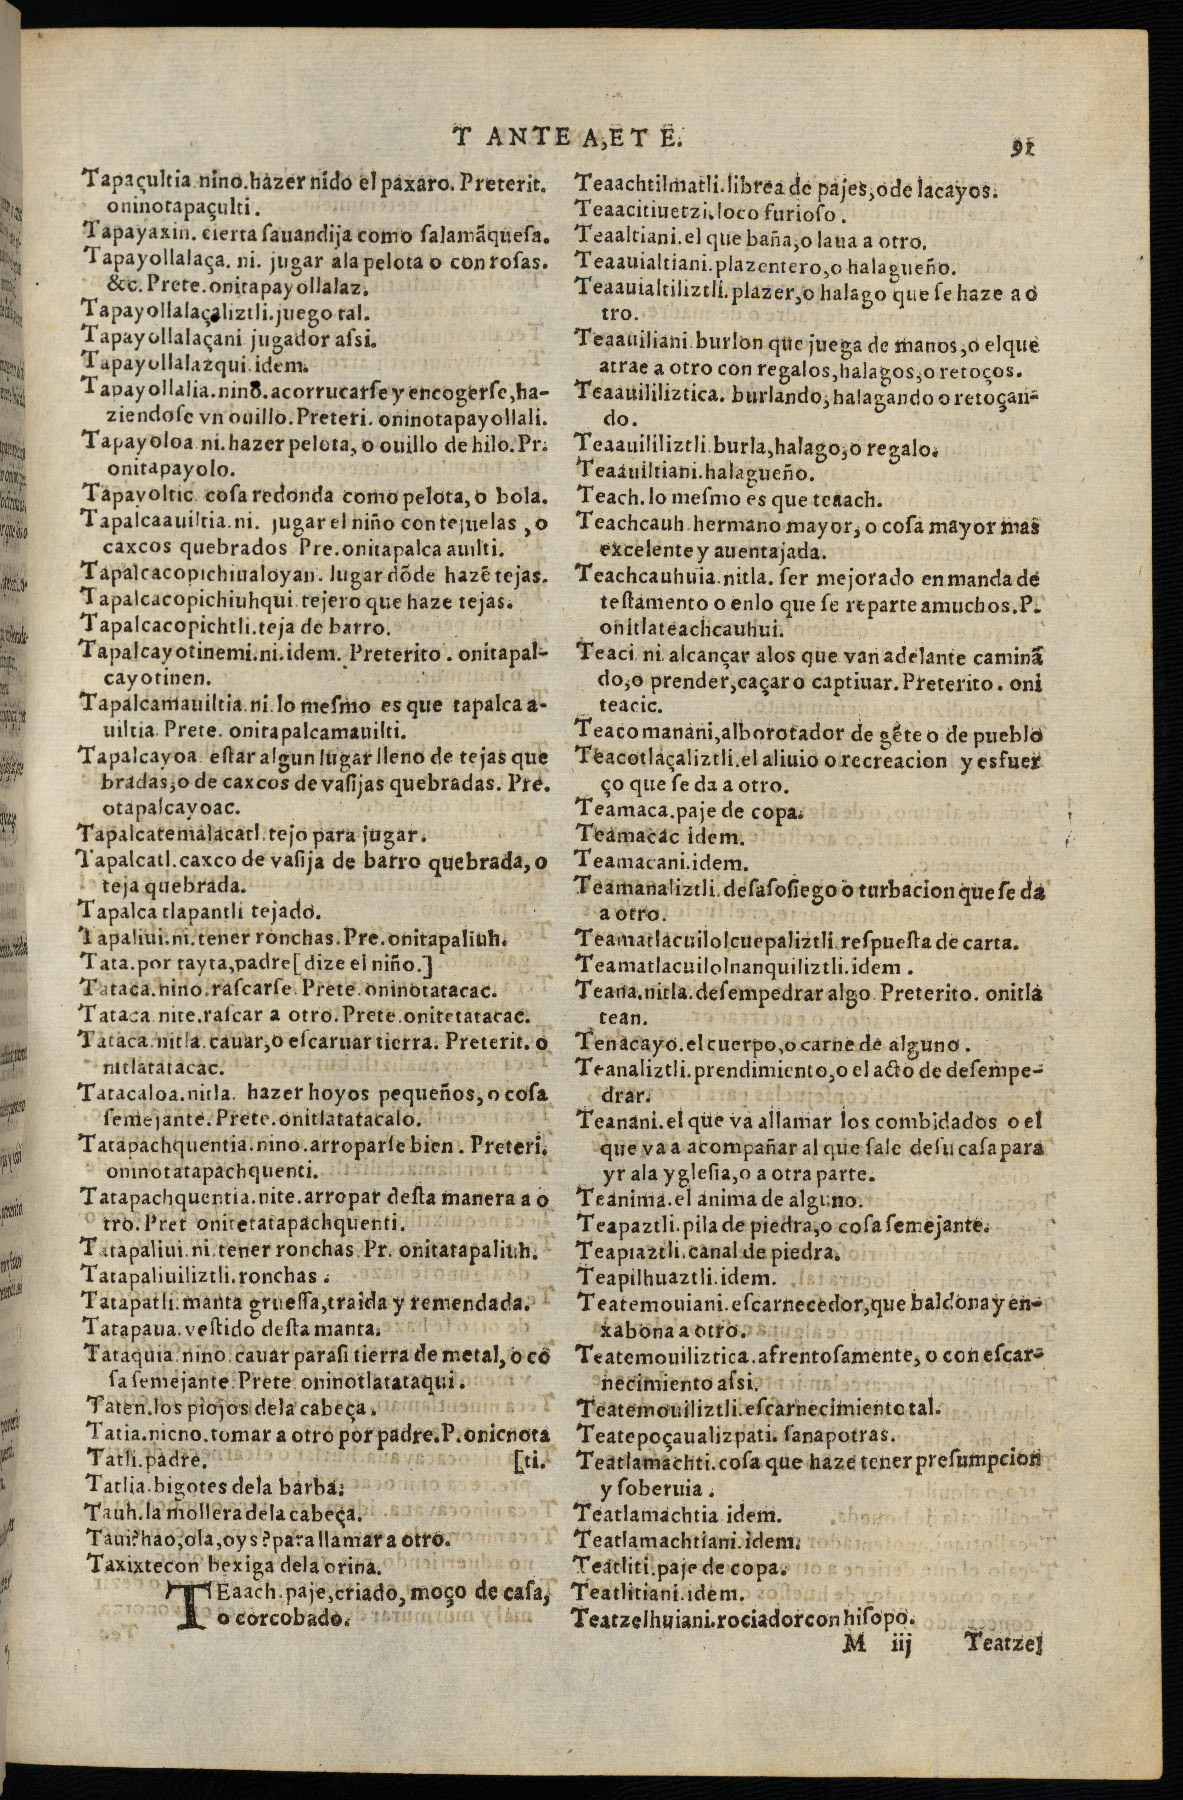 T ANTE A, ET E.
91
Tapaçultia nino. hazer nido el paxaro. Preterit.
oninotapaçulti.
Tapayaxin. cierta sauandija como salamãquesa.
Tapayollalaça. ni. jugar ala pelota o con rosas.
&c. Prete. onitapayollalaz.
Tapayollalaçaliztli. juego tal.
Tapayollalaçani jugador assi.
Tapayollalazqui. idem.
Tapayollalia. nino. acorrucarse y encogerse, ha-
ziendose vn ouillo. Preteri. oninotapayollali.
Tapayoloa ni. hazer pelota, o ouillo de hilo. Pr.
onitapayolo.
Tapayoltic cosa redonda como pelota, o bola.
Tapalcaauiltia. ni. jugar el niño con tejuelas, o
caxcos quebrados Pre. onitapalca auilti.
Tapalcacopichiualoyan. lugar dõde hazẽ tejas.
Tapalcacopichiuhqui. tejero que haze tejas.
Tapalcacopichtli. teja de barro.
Tapalcayotinemi. ni. idem. Preterito. onitapal-
cayotinen.
Tapalcamauiltia. ni. lo mesmo es que tapalca a-
uiltia Prete. onitapalcamauilti.
Tapalcayoa estar algun lugar lleno de tejas que
bradas, o de caxcos de vasijas quebradas. Pre.
otapalcayoac.
Tapalcatemalacatl. tejo para jugar.
Tapalcatl. caxco de vasija de barro quebrada, o
teja quebrada.
Tapalca tlapantli tejado.
Tapaliui. ni. tener ronchas. Pre. onitapaliuh.
Tata. por tayta, padre [dize el niño.]
Tataca. nino. rascarse. Prete. oninotatacac.
Tataca nite. rascar a otro. Prete. onitetatacac.
Tataca. nitla. cauar, o escaruar tierra. Preterit. o
nitlatatacac.
Tatacaloa. nitla. hazer hoyos pequeños, o cosa
semejante. Prete. onitlatatacalo.
Tatapachquentia. nino. arroparse bien. Preteri.
oninotatapachquenti.
Tatapachquentia. nite. arropar desta manera a o
tro. Pret onitetatapachquenti.
Tatapaliui. ni. tener ronchas. Pr. onitatapaliuh.
Tatapaliuiliztli. ronchas.
Tatapatli. manta gruessa, traida y remendada.
Tatapaua. vestido desta manta.
Tataquia. nino. cauar para si tierra de metal, o co
sa semejante. Prete oninotlatataqui.
Taten. los piojos dela cabeça.
Tatia. nicno. tomar a otro por padre. P. onicnota
Tatli. padre. [ti.
Tatlia. bigotes dela barba.
Tauh. la mollera dela cabeça.
Taui? hao, ola, oys? para llamar a otro.
Taxixtecon bexiga dela orina.
TEaach. paje, criado, moço de casa,
o corcobado.
Teaachtilmatli. librea de pajes, o de lacayos.
Teaacitiuetzi. loco furioso.
Teaaltiani. el que baña, o laua a otro.
Teaauialtiani. plazentero, o halagueño.
Teaauialtiliztli. plazer, o halago que se haze a o
tro.
Teaauiliani burlon que juega de manos, o el que
atrae a otro con regalos, halagos, o retoços.
Teaauililiztica. burlando, halagando o retoçan-
do.
Teaauililiztli burla, halago, o regalo.
Teaauiltiani. halagueño.
Teach. lo mesmo es que teaach.
Teachcauh hermano mayor, o cosa mayor mas
excelente y auentajada.
Teachcauhuia. nitla. ser mejorado en manda de
testamento o enlo que se reparte amuchos. P.
onitlateachcauhui.
Teaci ni alcançar alos que van adelante caminã
do, o prender, caçar o captiuar. Preterito. oni
teacic.
Teacomanani, alborotador de gẽte o de pueblo
Teacotlaçaliztli. el aliuio o recreacion y esfuer
ço que se da a otro.
Teamaca. paje de copa.
Teamacac idem.
Teamacani. idem.
Teamanaliztli. desasosiego o turbacion que se da
a otro.
Teamatlacuilolcuepaliztli. respuesta de carta.
Teamatlacuilolnanquiliztli. idem.
Teana. nitla. desempedrar algo Preterito. onitla
tean.
Tenacayo. el cuerpo, o carne de alguno.
Teanaliztli. prendimiento, o el acto de desempe-
drar.
Teanani. el que va allamar los combidados o el
que va a acompañar al que sale de su casa para
yr ala yglesia, o a otra parte.
Teanima. el anima de alguno.
Teapaztli. pila de piedra, o cosa semejante.
Teapiaztli. canal de piedra.
Teapilhuaztli. idem.
Teatemouiani. escarnecedor, que baldona y en-
xabona a otro.
Teatemouiliztica. afrentosamente, o con escar-
necimiento assi.
Teatemouiliztli. escarnecimiento tal.
Teatepoçaualizpati. sanapotras.
Teatlamachti. cosa que haze tener presumpcion
y soberuia.
Teatlamachtia idem.
Teatlamachtiani. idem.
Teatliti. paje de copa.
Teatlitiani. idem.
Teatzelhuiani. rociador con hisopo.
M iij Teatzel